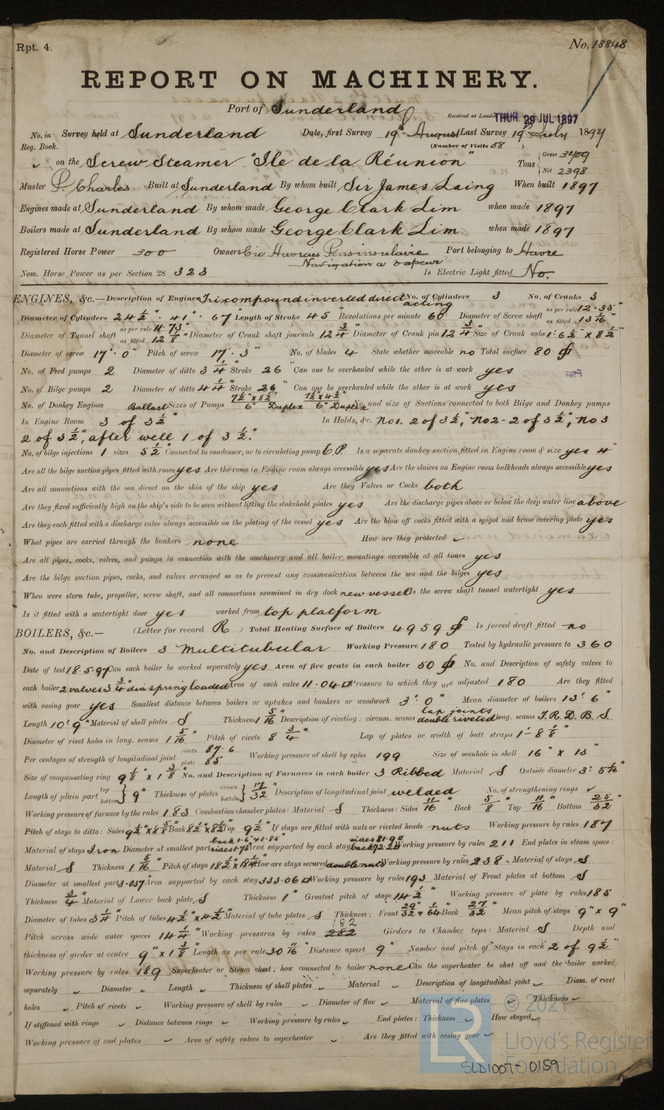 Rpt. 4.
No. 18848
REPORT ON MACHINERY.
Port of Sunderland
Received at London THUR 29 JUL 1897
No. in Survey held at Sunderland Date, first Survey 19th August Last Survey 19th July 1897
Reg. Book. (Number of Visits 58)
on the Screw Steamer "Ile de la Réunion" Tons Gross Net 2398
Master P. Charles Built at Sunderland By whom built Sir James Laing When built 1897
Engines made at Sunderland By whom made George Clark Lim when made 1897
Boilers made at Sunderland By whom made George Clark Lim when made 1897
Registered Horse Power 300 Owners Cie Havraise Peninsulaire Port belonging to Havre
Navigation a vapeur
Nom. Horse Power as per Section 28 323 Is Electric Light fitted No.
ENGINES, &c.—Description of Engines Tri compound inverted direct acting No. of Cylinders 3 No. of Cranks 3
Diameter of Cylinders 24½" - 41" - 67 Length of Stroke 45" Revolutions per minute 60 Diameter of Screw shaft as per rule 12.35" as fitted 13 1/16"
Diameter of Tunnel shaft as per rule 11.73" as fitted 12⅛" Diameter of Crank shaft journals 12¾" Diameter of Crank pin 12¾" Size of Crank webs
Diameter of screw 17'.0" Pitch of screw 17'.3" No. of blades 4 State whether moveable no Total surface 80
No. of Feed pumps 2 Diameter of ditto 3¼" Stroke 26 Can one be overhauled while the other is at work yes
No. of Bilge pumps 2 Diameter of ditto 4¼" Stroke 26" Can one be overhauled while the other is at work yes
No. of Donkey Engines Ballast Sizes of Pumps 6" Duplex 6" Duplex and size of Suctions connected to both Bilge and Donkey pumps
In Engine Room 3 of 3½" In Holds, &c. No1. 2 of 3½", No2 - 2 of 3½", No3
2 of 3½", after well 1 of 3½".
No. of bilge injections 1 sizes 5½" Connected to condenser, or to circulating pump C.P. Is a separate donkey suction fitted in Engine room & size yes 4"
Are all the bilge suction pipes fitted with roses yes Are the roses in Engine room always accessible yes Are the sluices on Engine room bulkheads always accessible yes
Are all connections with the sea direct on the skin of the ship yes Are they Valves or Cocks both
Are they fixed sufficiently high on the ship's side to be seen without lifting the stokehold plates yes Are the discharge pipes above or below the deep water line above
Are they each fitted with a discharge valve always accessible on the plating of the vessel yes Are the blow off cocks fitted with a spigot and brass covering plate yes
What pipes are carried through the bunkers none How are they protected
Are all pipes, cocks, valves, and pumps in connection with the machinery and all boiler mountings accessible at all times yes
Are the bilge suction pipes, cocks, and valves arranged so as to prevent any communication between the sea and the bilges yes
When were stern tube, propeller, screw shaft, and all connections examined in dry dock new vessel Is the screw shaft tunnel watertight yes
Is it fitted with a watertight door yes worked from top platform
BOILERS, &c.— (Letter for record R) Total Heating Surface of Boilers 4959 Is forced draft fitted no
No. and Description of Boilers 3 Multitubular Working Pressure 180 Tested by hydraulic pressure to 360
Date of test 18.5.97 Can each boiler be worked separately yes Area of fire grate in each boiler 50 No. and Description of safety valves to
each boiler 2 valves 3¾" dia spring loaded Area of each valve 11.04 Pressure to which they are adjusted 180 Are they fitted
with easing gear yes Smallest distance between boilers or uptakes and bunkers or woodwork 3'.0" Mean diameter of boilers 13'.6"
Length 10'.9" Material of shell plates S Thickness 1 5/16" Description of riveting: circum. seams lap joints double riveted long. seams T.R.D.B.S
Diameter of rivet holes in long. seams 1 5/16" Pitch of rivets 8¾" Lap of plates or width of butt straps 1'-8⅛"
Per centages of strength of longitudinal joint rivets 87.6 plate 85 Working pressure of shell by rules 199 Size of manhole in shell 16" × 13"
Size of compensating ring 9½" × 1⅜" No. and Description of Furnaces in each boiler 3 Ribbed Material S Outside diameter
Length of plain part top bottom 9" Thickness of plates crown bottom 17/32" Description of longitudinal joint welded No. of strengthening rings
Working pressure of furnace by the rules 183 Combustion chamber plates: Material S Thickness: Sides 11/16" Back 5/8" Top 11/16" Bottom 25/32"
Pitch of stays to ditto: Sides Back Top 9½" If stays are fitted with nuts or riveted heads nuts Working pressure by rules 187
Material of stays Iron Diameter at smallest part Area supported by each stay Working pressure by rules 211 End plates in steam space:
Material S Thickness 1 5/16" Pitch of stays How are stays secured double nuts Working pressure by rules 238 Material of stays S
Diameter at smallest part 3.057 Area supported by each stay 333.06 Working pressure by rules 193 Material of Front plates at bottom S
Thickness ¾" Material of Lower back plate S Thickness 1" Greatest pitch of stays 14½" Working pressure of plate by rules 185
Diameter of tubes 3¼" Pitch of tubes 4½" × 4½" Material of tube plates S Thickness: Front Back 27/32" Mean pitch of stays 9" × 9"
Pitch across wide water spaces 14¼" Working pressures by rules 182 Girders to Chamber tops: Material S Depth and
thickness of girder at centre 9" × 1⅜" Length as per rule Distance apart 9" Number and pitch of Stays in each 2 of 9½"
Working pressure by rules 189 Superheater or Steam chest; how connected to boiler none Can the superheater be shut off and the boiler worked
separately Diameter Length Thickness of shell plates Material Description of longitudinal joint Diam. of rivet
holes Pitch of rivets Working pressure of shell by rules Diameter of flue Material of flue plates Thickness
If stiffened with rings Distance between rings Working pressure by rules End plates: Thickness How stayed
Working pressure of end plates Area of safety valves to superheater Are they fitted with easing gear
© 2021
Lloyd's Register
Foundation
LR
SLD1007-0159